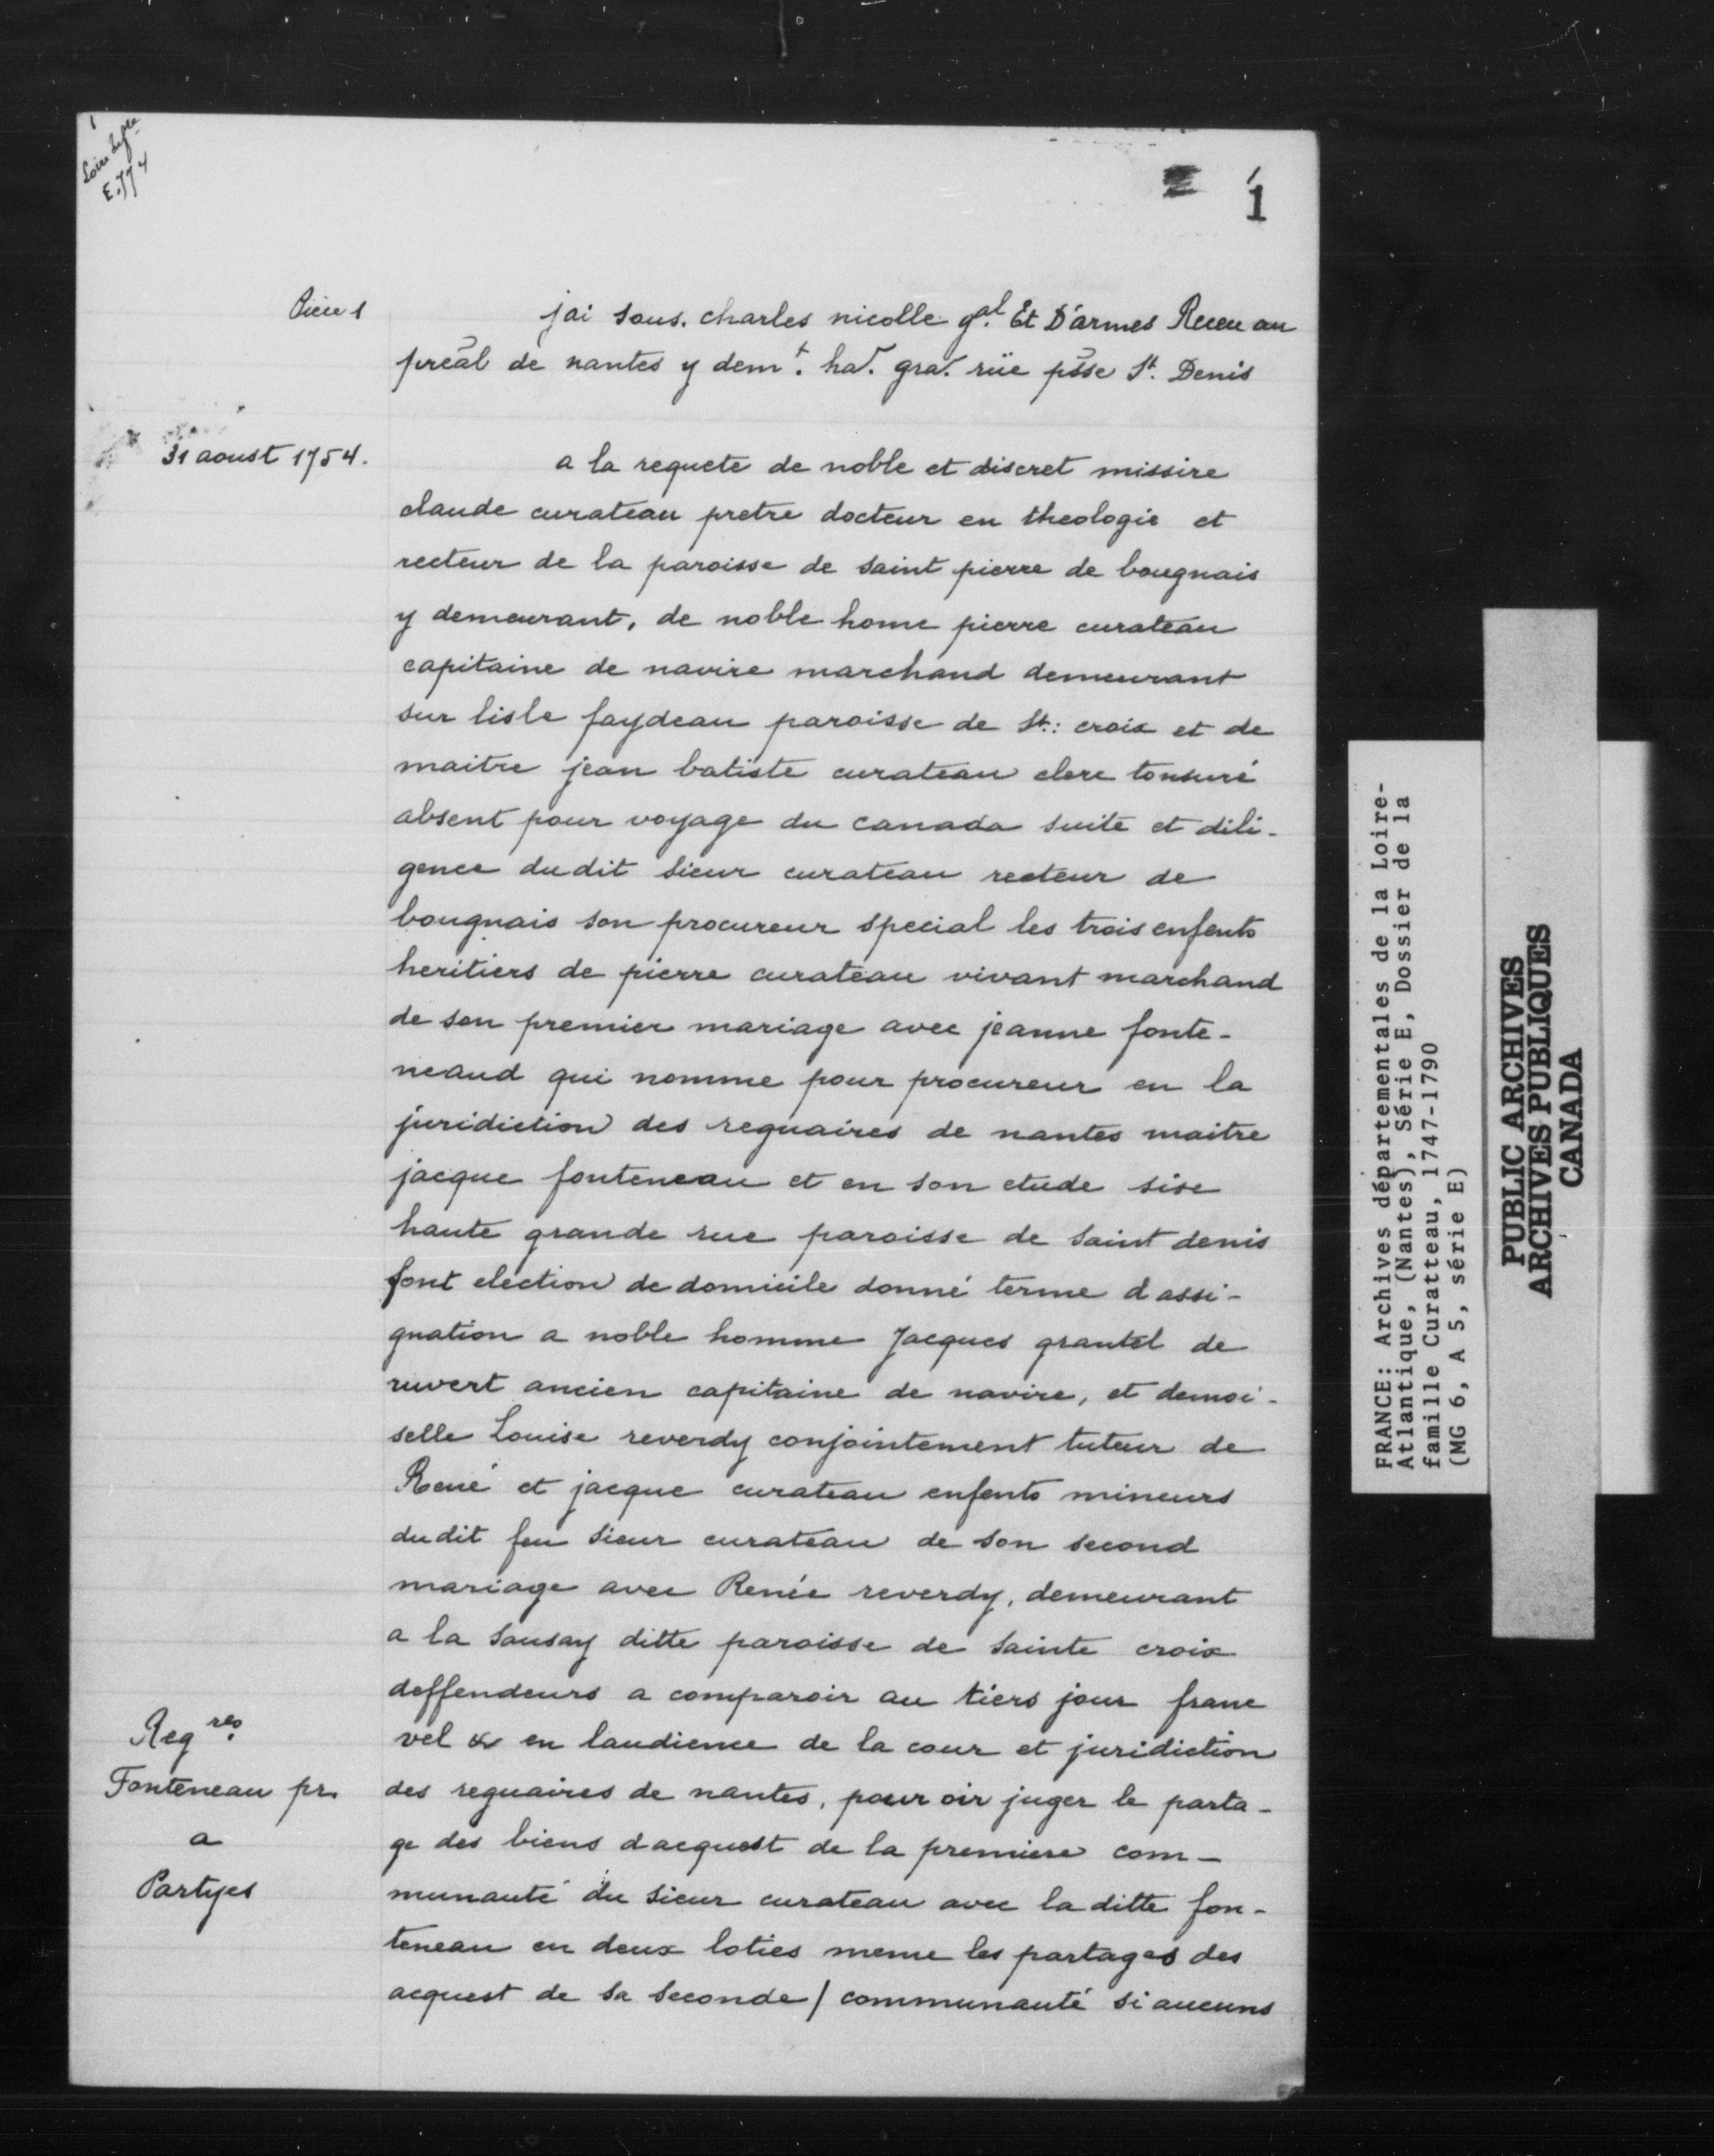 1
Loire Infre
E.774
1
Pièce 1
jai sous. charles nicolle gal. Et D'armes Receu au
preāl de nantes y demt. ha. gra. rüe psse St. Denis
31 aoust 1754.
a la requete de noble et discret missire
claude curateau pretre docteur en theologie et
recteur de la paroisse de saint pierre de bougnais
y demeurant, de noble home pierre curateau
capitaine de navire marchand demeurant
sur lisle faydeau paroisse de St: croix et de
maitre jean batiste curateau clerc tonsuré
absent pour voyage du canada suite et dili-
gence dudit sieur curateau recteur de
bougnais son procureur special les trois enfents
heritiers de pierre curateau vivant marchand
de son premier mariage avec jeanne fonte-
neaud qui nomme pour procureur en la
juridiction des reguaires de nantes maitre
jacque fonteneau et en son etude sise
haute grande rue paroisse de saint denis
font election de domicile donné terme dassi-
gnation a noble homme Jacques grantel de
ruvert ancien capitaine de navire, et demoi-
selle Louise reverdy conjointement tuteur de
René et jacque curateau enfents mineurs
dudit feu sieur curateau de son second
mariage avec Renée reverdy, demeurant
a la sausay ditte paroisse de sainte croix
deffendeurs a comparoir au tiers jour franc
vel & en laudience de la cour et juridiction
des reguaires de nantes, pour oir juger le parta-
ge des biens dacquest de la premiere com-
munauté du sieur curateau avec la ditte fon-
teneau en deux loties meme les partages des
acquest de sa seconde / communauté si aucuns
Reqres
Fonteneau pr.
a
Partyes
FRANCE: Archives départementales de la Loire-
Atlantique, (Nantes), Série E, Dossier de la
famille Curatteau, 1747-1790
(MG 6, A 5, série E)
PUBLIC ARCHIVES
ARCHIVES PUBLIQUES
CANADA